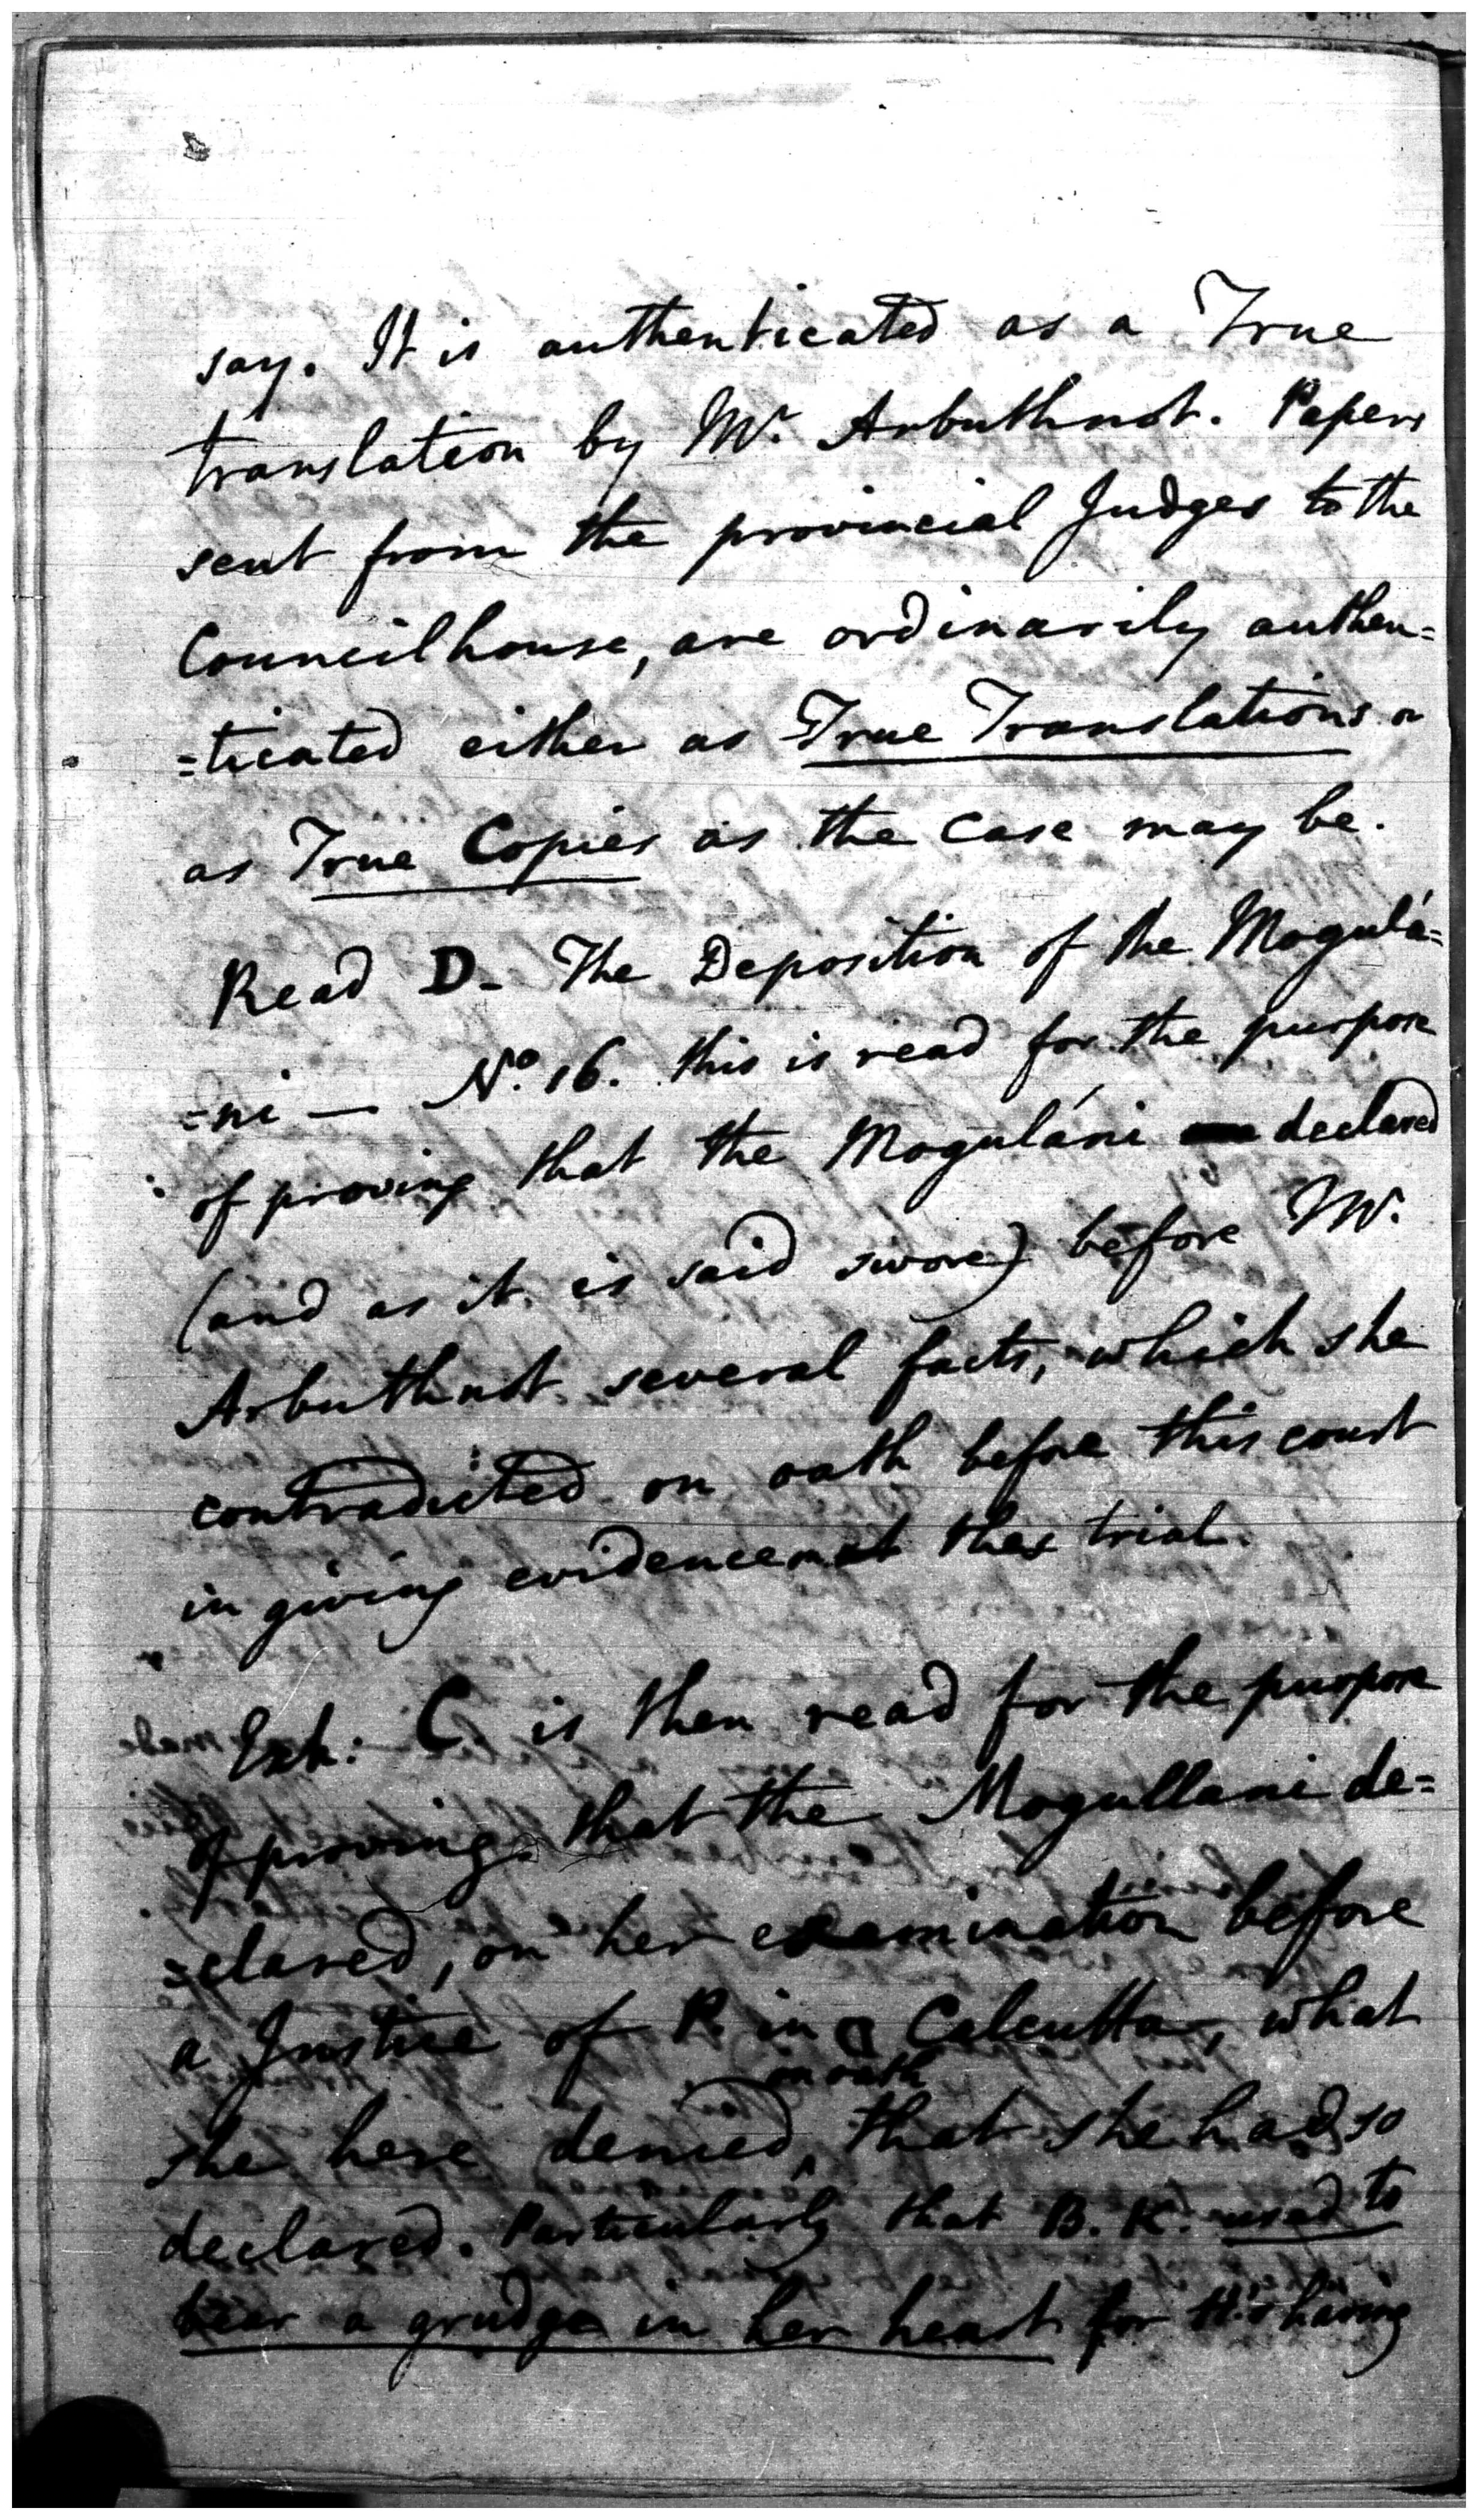 say. It is authenticated as a True
translation by Mr. Arbuthnot. Papers
sent from the provincial Judges to the
Councilhouse, are ordinarily authen=
=ticated either as True Translations or
as True Copies as the case may be.
Read D. The Deposition of the Mogulá=
=ni — No. 16. this is read for the purpose
of proving that the Moguláni declared
(and as it is said swore) before Mr.
Arbuthnot several facts, which she
contradicted on oath before this court
in giving evidence at this trial.
Exh: C is then read for the purpose
of proving that the Mogullani de=
=clared, on her examination before
a Justice of P. in Calcutta, what
on oath
she here denied, that she had so
declared. Particularly that B. K. used to
bear a grudge in her heart for H.'s having